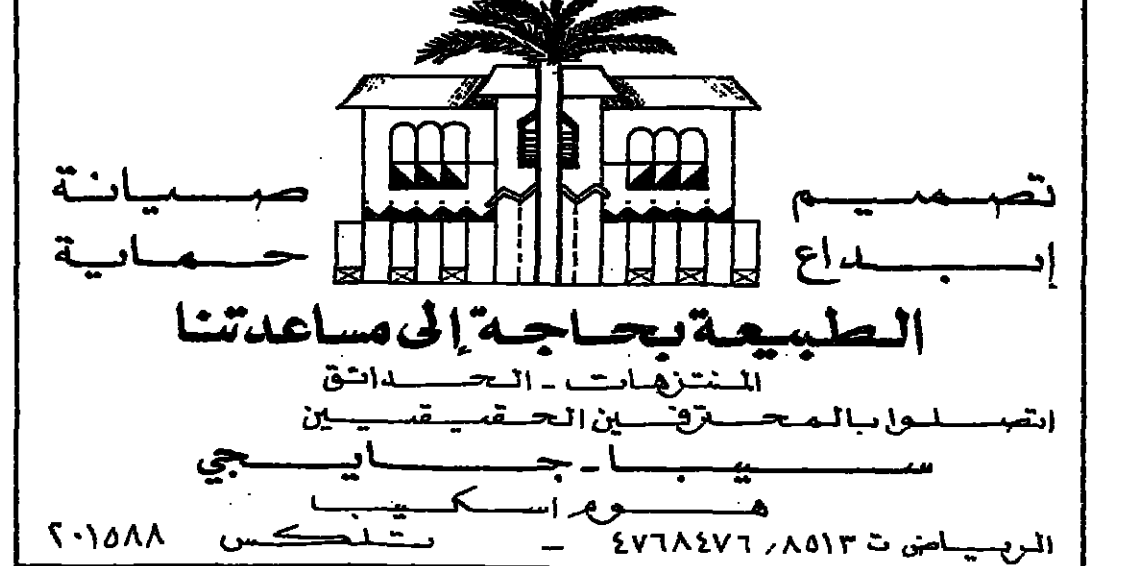 تصميم
صيانة
إبداع
حماية
الطبيعة بحاجة إلى مساعدتنا
المنتزهات - الحدائق
اتصلوا بالمحترفين الحقيقيين
سيبا - جايجي
هوم اسكيبا
الرياض ت ٤٧٦٨٤٧٦ / ٨٥١٣ - تلكس ٢٠١٥٨٨